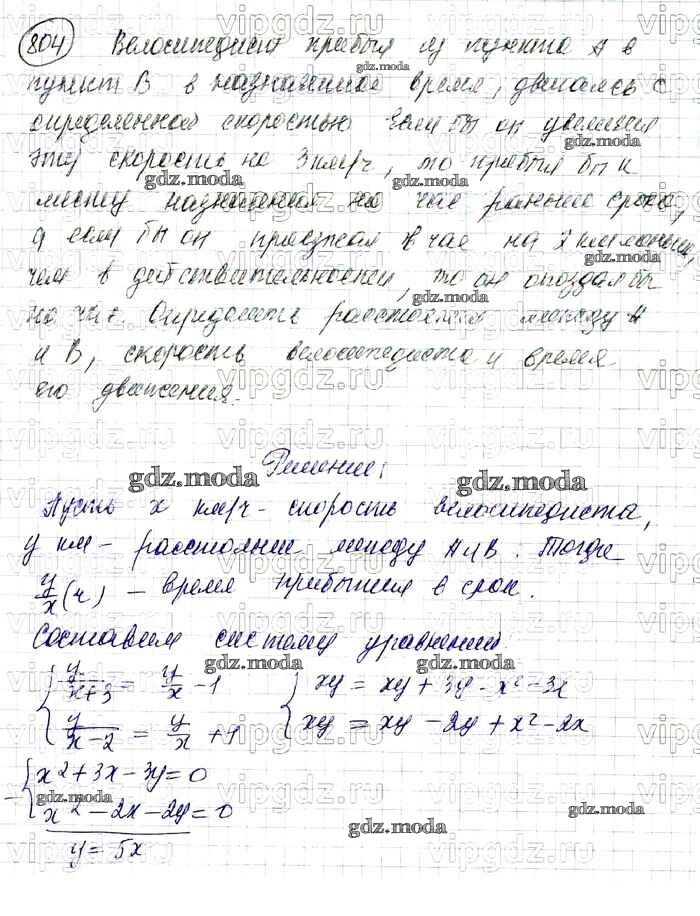 804 Велосипедист прибыл из пункта А в
пункт В в назначенное время, двигаясь с
определенной скоростью Если бы он увеличил
эту скорость на 3км/ч, то прибыл бы к
месту назначения на час раньше срока,
а если бы он проезжал в час на 2 км меньше,
чем в действительности, то он опоздал бы
на час. Определите расстояние между А
и В, скорость велосипедиста и время
его движения.
Решение:
Пусть x км/ч - скорость велосипедиста,
y км - расстояние между А и В. Тогда
y/x (ч) - время прибытия в срок.
Составим систему уравнений.
{ y/(x+3) = y/x - 1 { xy = xy + 3y - x² - 3x
{ y/(x-2) = y/x + 1 { xy = xy - 2y + x² - 2x
{ x² + 3x - 3y = 0
- { x² - 2x - 2y = 0
y = 5x
vipgdz.ru
gdz.moda